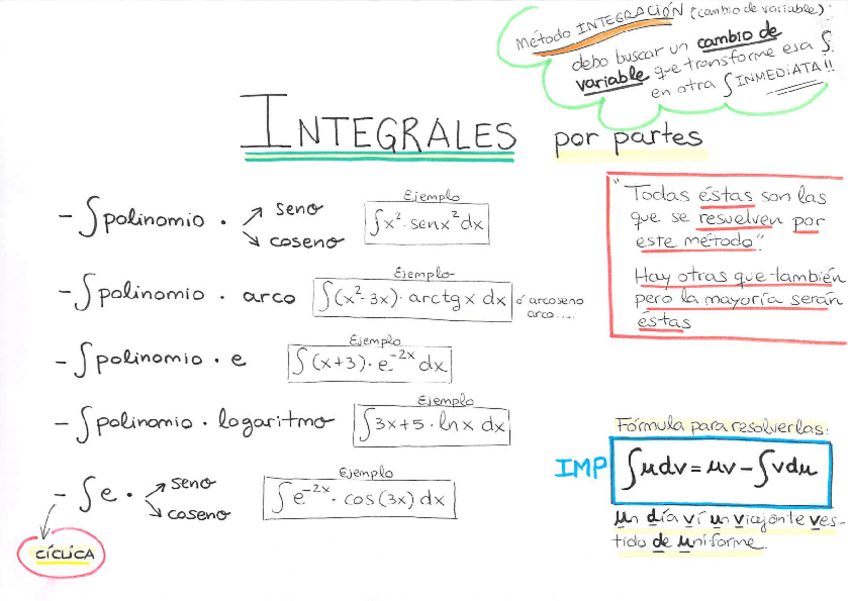 Método INTEGRACIÓN (cambio de variable):
debo buscar un cambio de
variable que transforme esa ∫
en otra ∫ INMEDIATA!!
INTEGRALES por partes
- ∫ polinomio · ↗ seno
↘ coseno
Ejemplo
∫x²·senx²dx
- ∫ polinomio · arco
Ejemplo
∫(x²-3x)·arctgx dx
ó arcoseno
arco....
- ∫ polinomio · e
Ejemplo
∫(x+3)·e⁻²ˣdx
- ∫ polinomio · logaritmo
Ejemplo
∫3x+5·lnx dx
- ∫e · ↗ seno
↘ coseno
Ejemplo
∫e⁻²ˣ·cos(3x)dx
CÍCLICA
"Todas éstas son las
que se resuelven por
este método"
Hay otras que también
pero la mayoría serán
éstas
Fórmula para resolverlas:
IMP ∫udv=uv-∫vdu
un día ví un viejonte ves-
tido de uniforme.